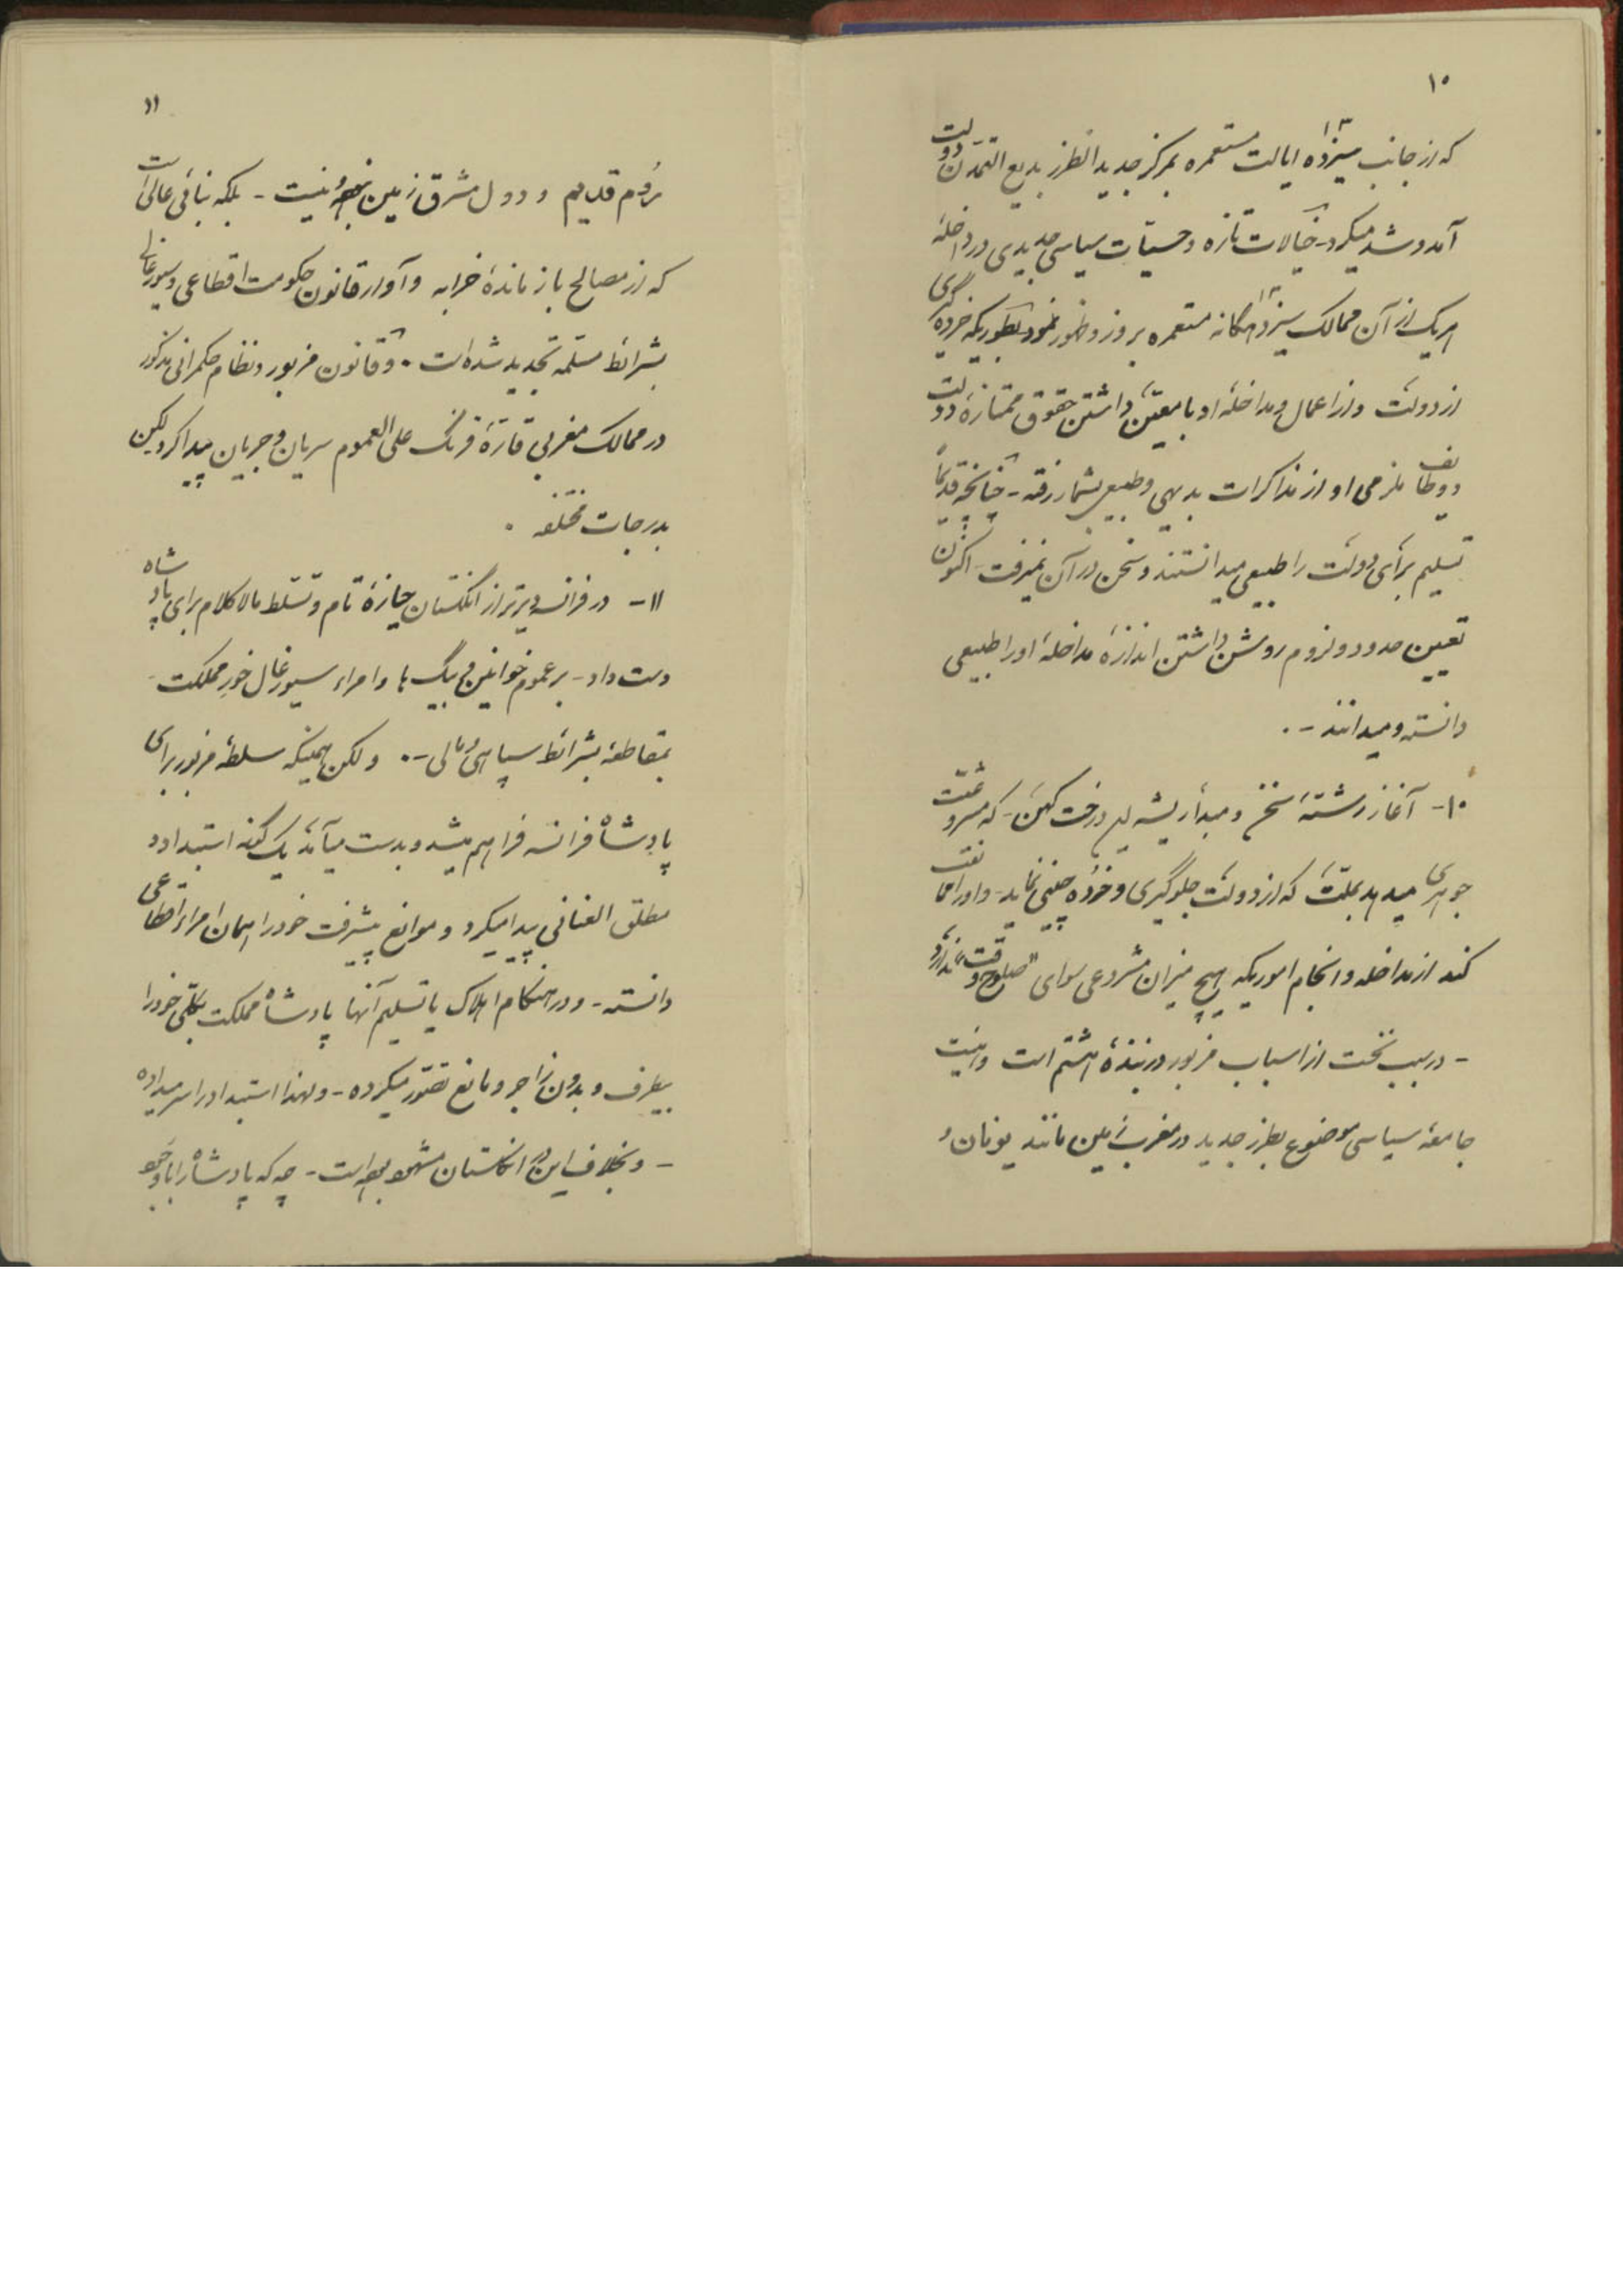 ۱۰
که از جانب سیزده ۱۳ ایالت مستعمره بمرکز جدید الطرز بدیع التمدن دولت
آمد و شد میکرد - خیالات تازه و حسیّات سیاسی جدیدی در داخلهٔ
هریک از آن ممالک سیزدهگانه ۱۳ مستعمره بروز و ظهور نمود بطوریکه خرده گیری
از دولت و از اعمال و مداخلهٔ او با معیّن داشتن حقوق ممتازهٔ دولت
و وظایف ملزمی او از مذاکرات بدیهی و طبیعی بشمار رفته - چنانچه قدیماً
تسلیم برأی دولت را طبیعی میدانستند و سخن در آن نمیرفت - اکنون
تعیین حدود و لزوم روشن داشتن اندازهٔ مداخلهٔ او را طبیعی
دانسته و میدانند - .
۱۰- آغاز رشتهٔ سخن و مبدأ ریشه این درخت کهن - که مشروعیت
جوهری میدهد بملّت که از دولت جلوگیری و خرده چینی نماید - و او را ممانعت
کند از مداخله و انجام اموریکه هیچ میزان مشروعی سوای "صلوح وقت" ندارد
- در سبب نخست از اسباب مزبور در بندهٔ هشتم است و اینست
جامعهٔ سیاسی موضوع بطرز جدید در مغرب زمین مانند یونان و
۱۱
رُوم قدیم و دول مشرق زمین نبوده و نیست - بلکه بنائی عالی است
که از مصالح باز ماندهٔ خرابه و آوار قانون حکومت اقطاعی و سیورغالی
بشرائط مسلّمه تجدید شده است . و قانون مزبور و نظام حکمرانی مذکور
در ممالک مغربی قارّهٔ فرنگ علی العموم سریان و جریان پیدا کرد لیکن
بدرجات مختلفه .
۱۱- در فرانسه دیرتر از انگلستان حیازهٔ تام و تسلط مالاکلام برای پادشاه
دست داد - بر عموم خوانین و بیگ ها و امراء سیورغال خورِ مملکت
بمقاطعهٔ بشرائط سپاهی و مالی - . ولکن همینکه سلطهٔ مزبور برای
پادشاه فرانسه فراهم میشد و بدست میآمد یک گونه استبداد و
مطلق العنانی پیدا میکرد و موانع پیشرفت خود را همان امراء اقطاعی
دانسته - و در هنگام اهلاک یا تسلیم آنها پادشاه مملکت بکلّی خود را
بیطرف و بدون زاجر و مانع تصوّر میکرده - ولهذا استبداد را سر میداده
- و بخلاف این در انگلستان مشهود بوده است - چه که پادشاه را با وجود